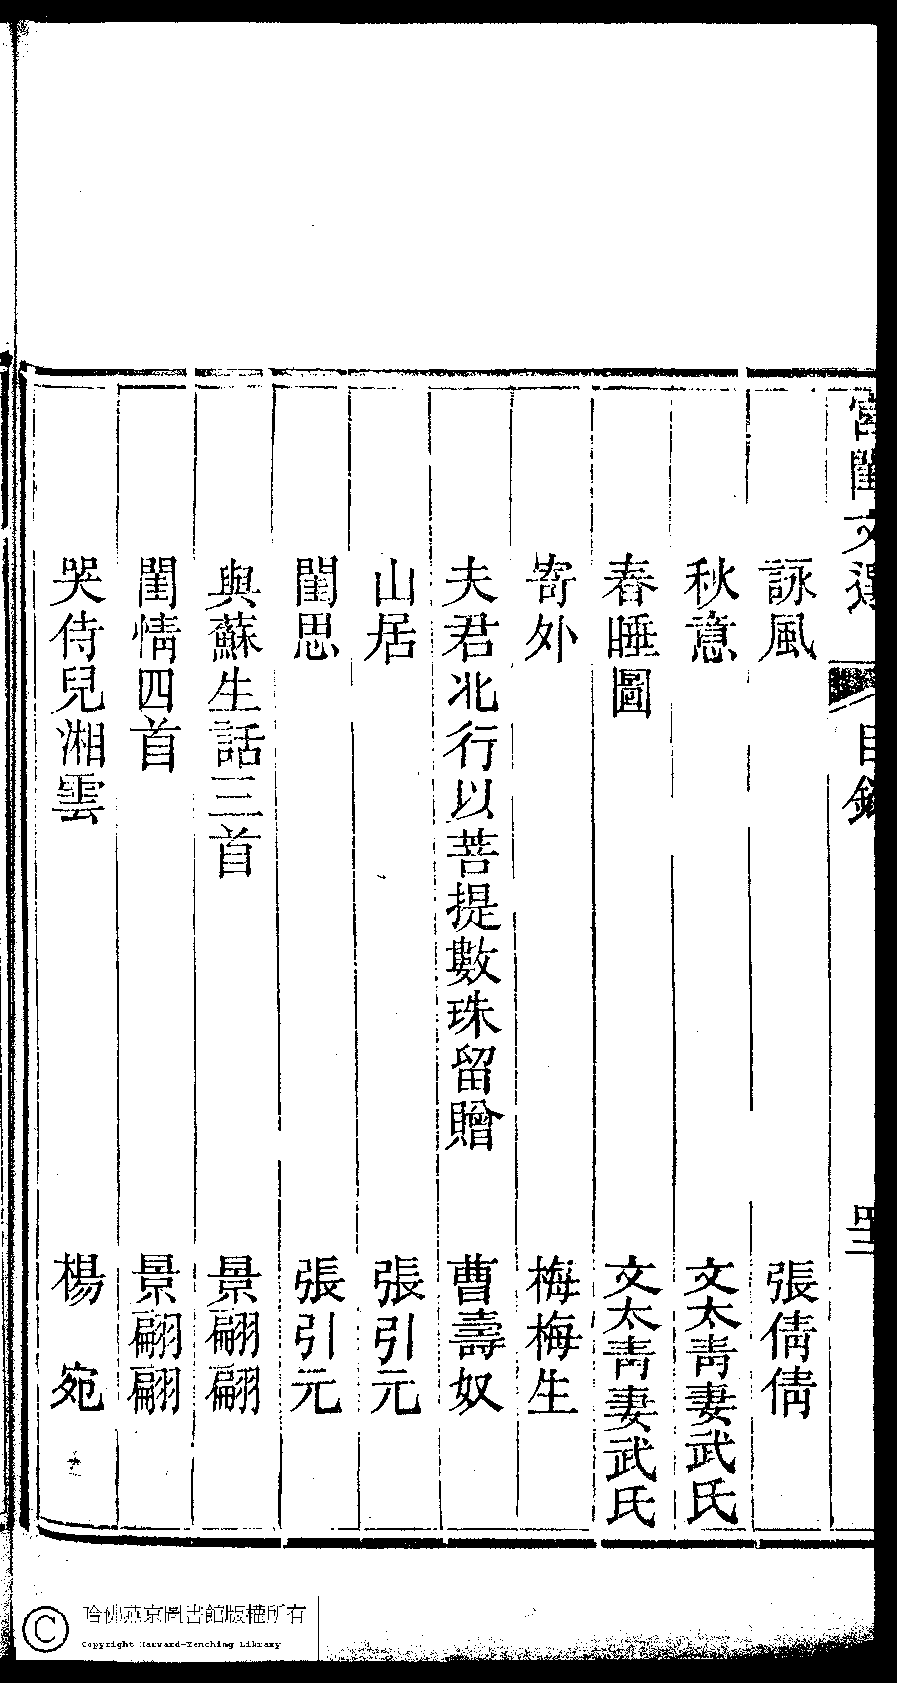 宮閨文選 目錄
詠風 張倩倩
秋意 文太青妻武氏
春睡圖 文太青妻武氏
寄外 梅梅生
夫君北行以菩提數珠留贈 曹壽奴
山居 張引元
閨思 張引元
與蘇生話三首 景翩翩
閨情四首 景翩翩
哭侍兒湘雲 楊宛
哈佛燕京圖書館版權所有
Copyright Harvard-Yenching Library